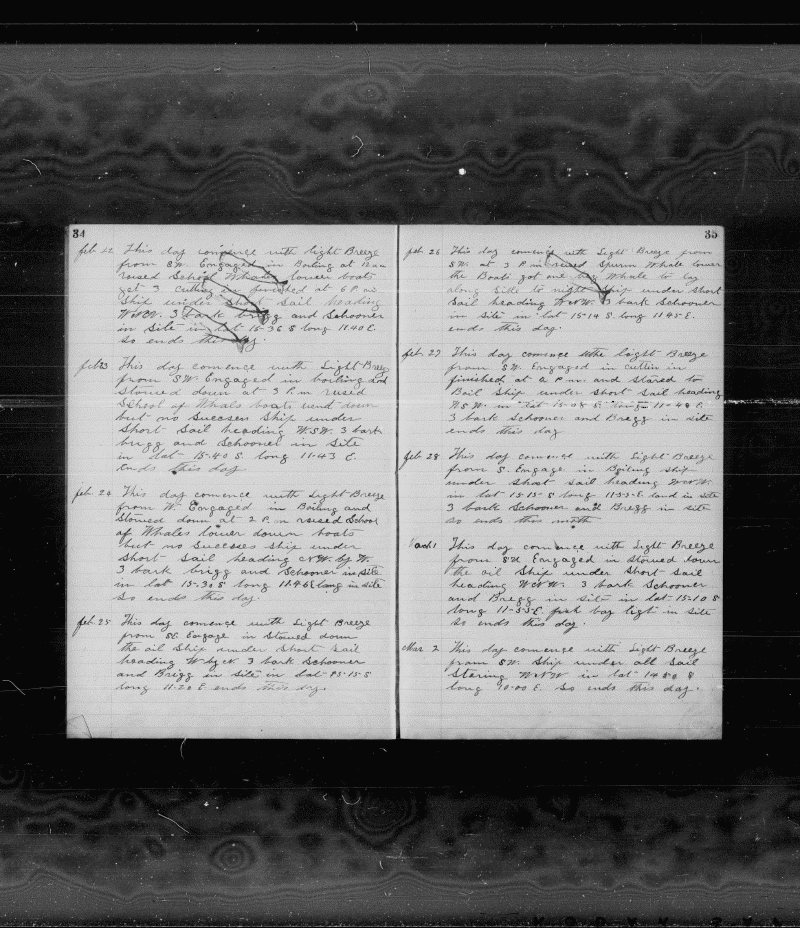 34
feb. 22 This day comence with light Breeze
from SW. Engaged in Boiling at 12 am
raised School Whales lower boats
get 3 cutting in finished at 6 P m
Ship under Short Sail heading
WNW. 3 bark brigg and Schooner
in Site in lat 15-36 S long 11 40 E.
So ends this day.
feb 23 This day comence with Light Breeze
from SW. Engaged in boiling and
Stowed down at 3 P.m raised
School of Whals boats went down
but no Succses Ship under
Short Sail heading W.S.W. 3 bark
brigg and Schooner in Site
in lat 15-40 S. long 11-43 E.
Ends this day
feb. 24 This day comence with Light Breeze
from W. Engaged in Boiling and
Stowed down at 2 P.m raised School
of Whales lower down boats
but no Succses Ship under
Short Sail heading NW. by W.
3 bark brigg and Schooner in site
in lat 15-30 S long 11.46 E lang in site
So ends this day.
feb. 25 This day comence with Light Breeze
from SE. Engage in Stowed down
the oil Ship under Short Sail
heading W by N. 3 bark Schooner
and Brigg in Site in Lat-15-15-S
long 11-20 E ends this day.
35
feb. 26 This day comence with Light Breeze from
SW. at 3 P m raised Spurm Whale lower
the Boats got one big Whale to lay
along Side to night Ship under Short
Sail heading WNW 3 bark Schooner
in Site in lat 15-14 S long 11 45 E.
ends this day.
feb. 27 This day comence with Light Breeze
from SW. Engaged in cuttin in
finished at 2 P m. and stared to
Boil Ship under Short Sail heading
WSW. in lat 15-08 S. long 11-48 E.
3 bark Schooner and Bregg in site
ends this day
feb 28 This day comence with Light Breeze
from S. Engage in Boiling Ship
under Short Sail heading WNW.
in lat 15-15-S long 11-53-E land in site
3 bark Schooner and Bregg in site
so ends this month
March 1 This day comence with Light Breeze
from SW Engaged in Stowed down
the oil Ship under Short Sail
heading WNW. 3 bark Schooner
and Bregg in site in lat-15-10 S
long 11-55 E. fish bay ligt in Site
So ends this day.
Mar. 2 This day comence with Light Breeze
from SW. Ship under all Sail
Staring WNW in lat 14 50 S
long 10-00 E. So ends this day.